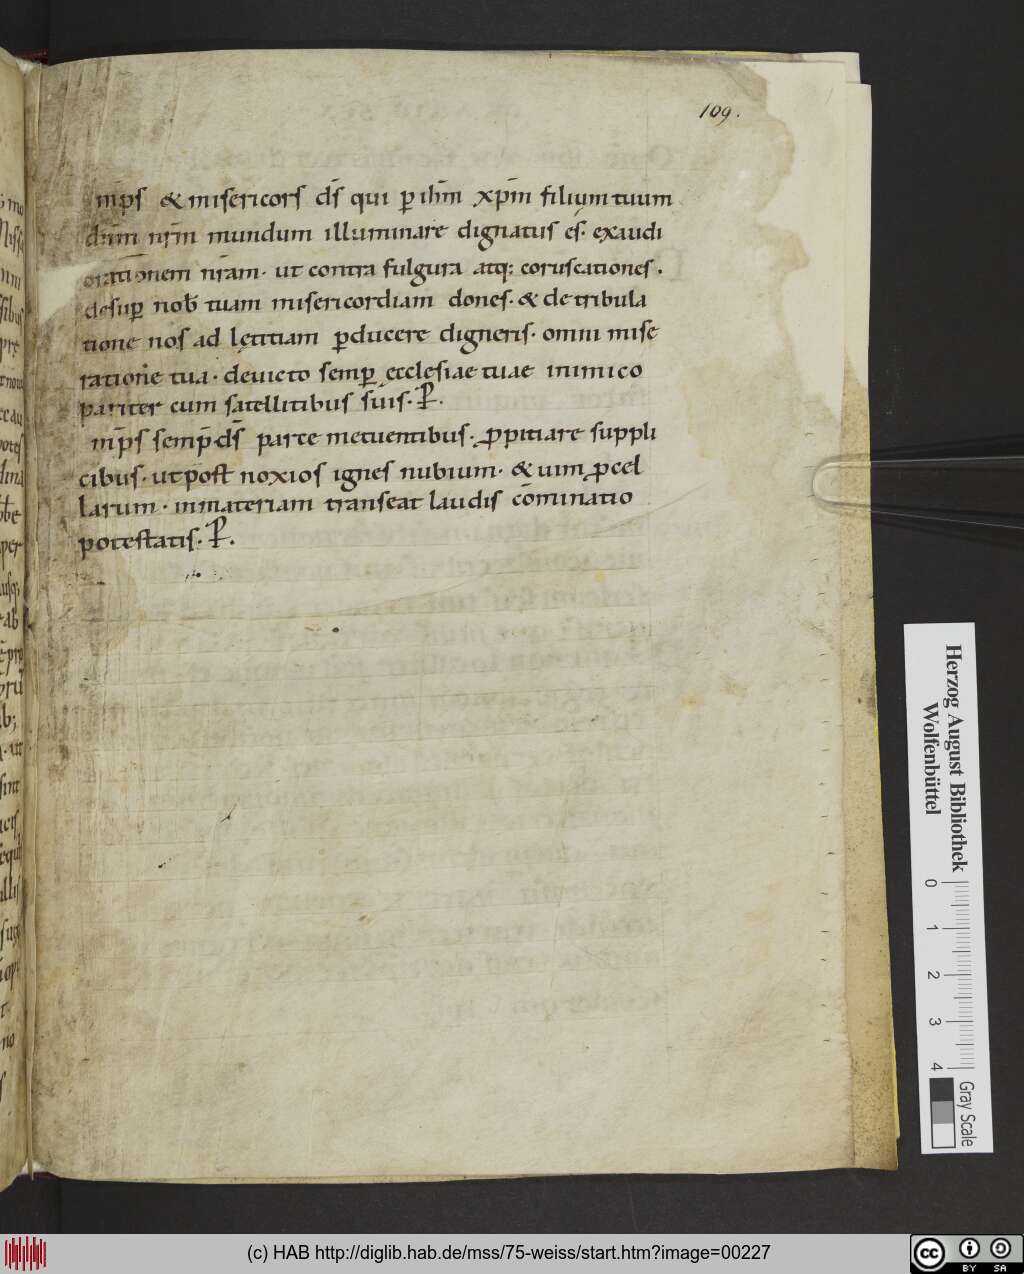 109.
mp̄s & misericors d̄s qui p ih̄m xp̄m filium tuum
dn̄m nr̄m mundum illuminare dignatus es. exaudi
orationem nr̄am. ut contra fulgura atq: coruscationes.
desup nob̄ tuam misericordiam dones. & de tribula
tione nos ad lętitiam pducere digneris. omni mise
ratione tua. deuicto semp ecclesiae tuae inimico
pariter cum satellitibus suis. P.
mp̄s semp̄ d̄s parce metuentibus. ppitiare suppli
cibus. ut post noxios ignes nubium. & uim pcel
larum. in materiam transeat laudis cōminatio
potestatis. P.
Herzog August Bibliothek
Wolfenbüttel
0 1 2 3 4
Gray Scale
(c) HAB http://diglib.hab.de/mss/75-weiss/start.htm?image=00227
cc BY SA